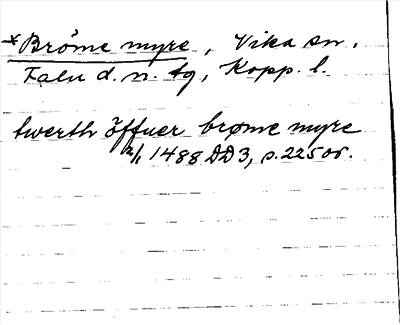 *Bröme myre, Vika sn.
Falu d. n. tg, Kopp. l.
twerth öffuer brøme myre
2/1 1488 DD 3, s. 225 or.